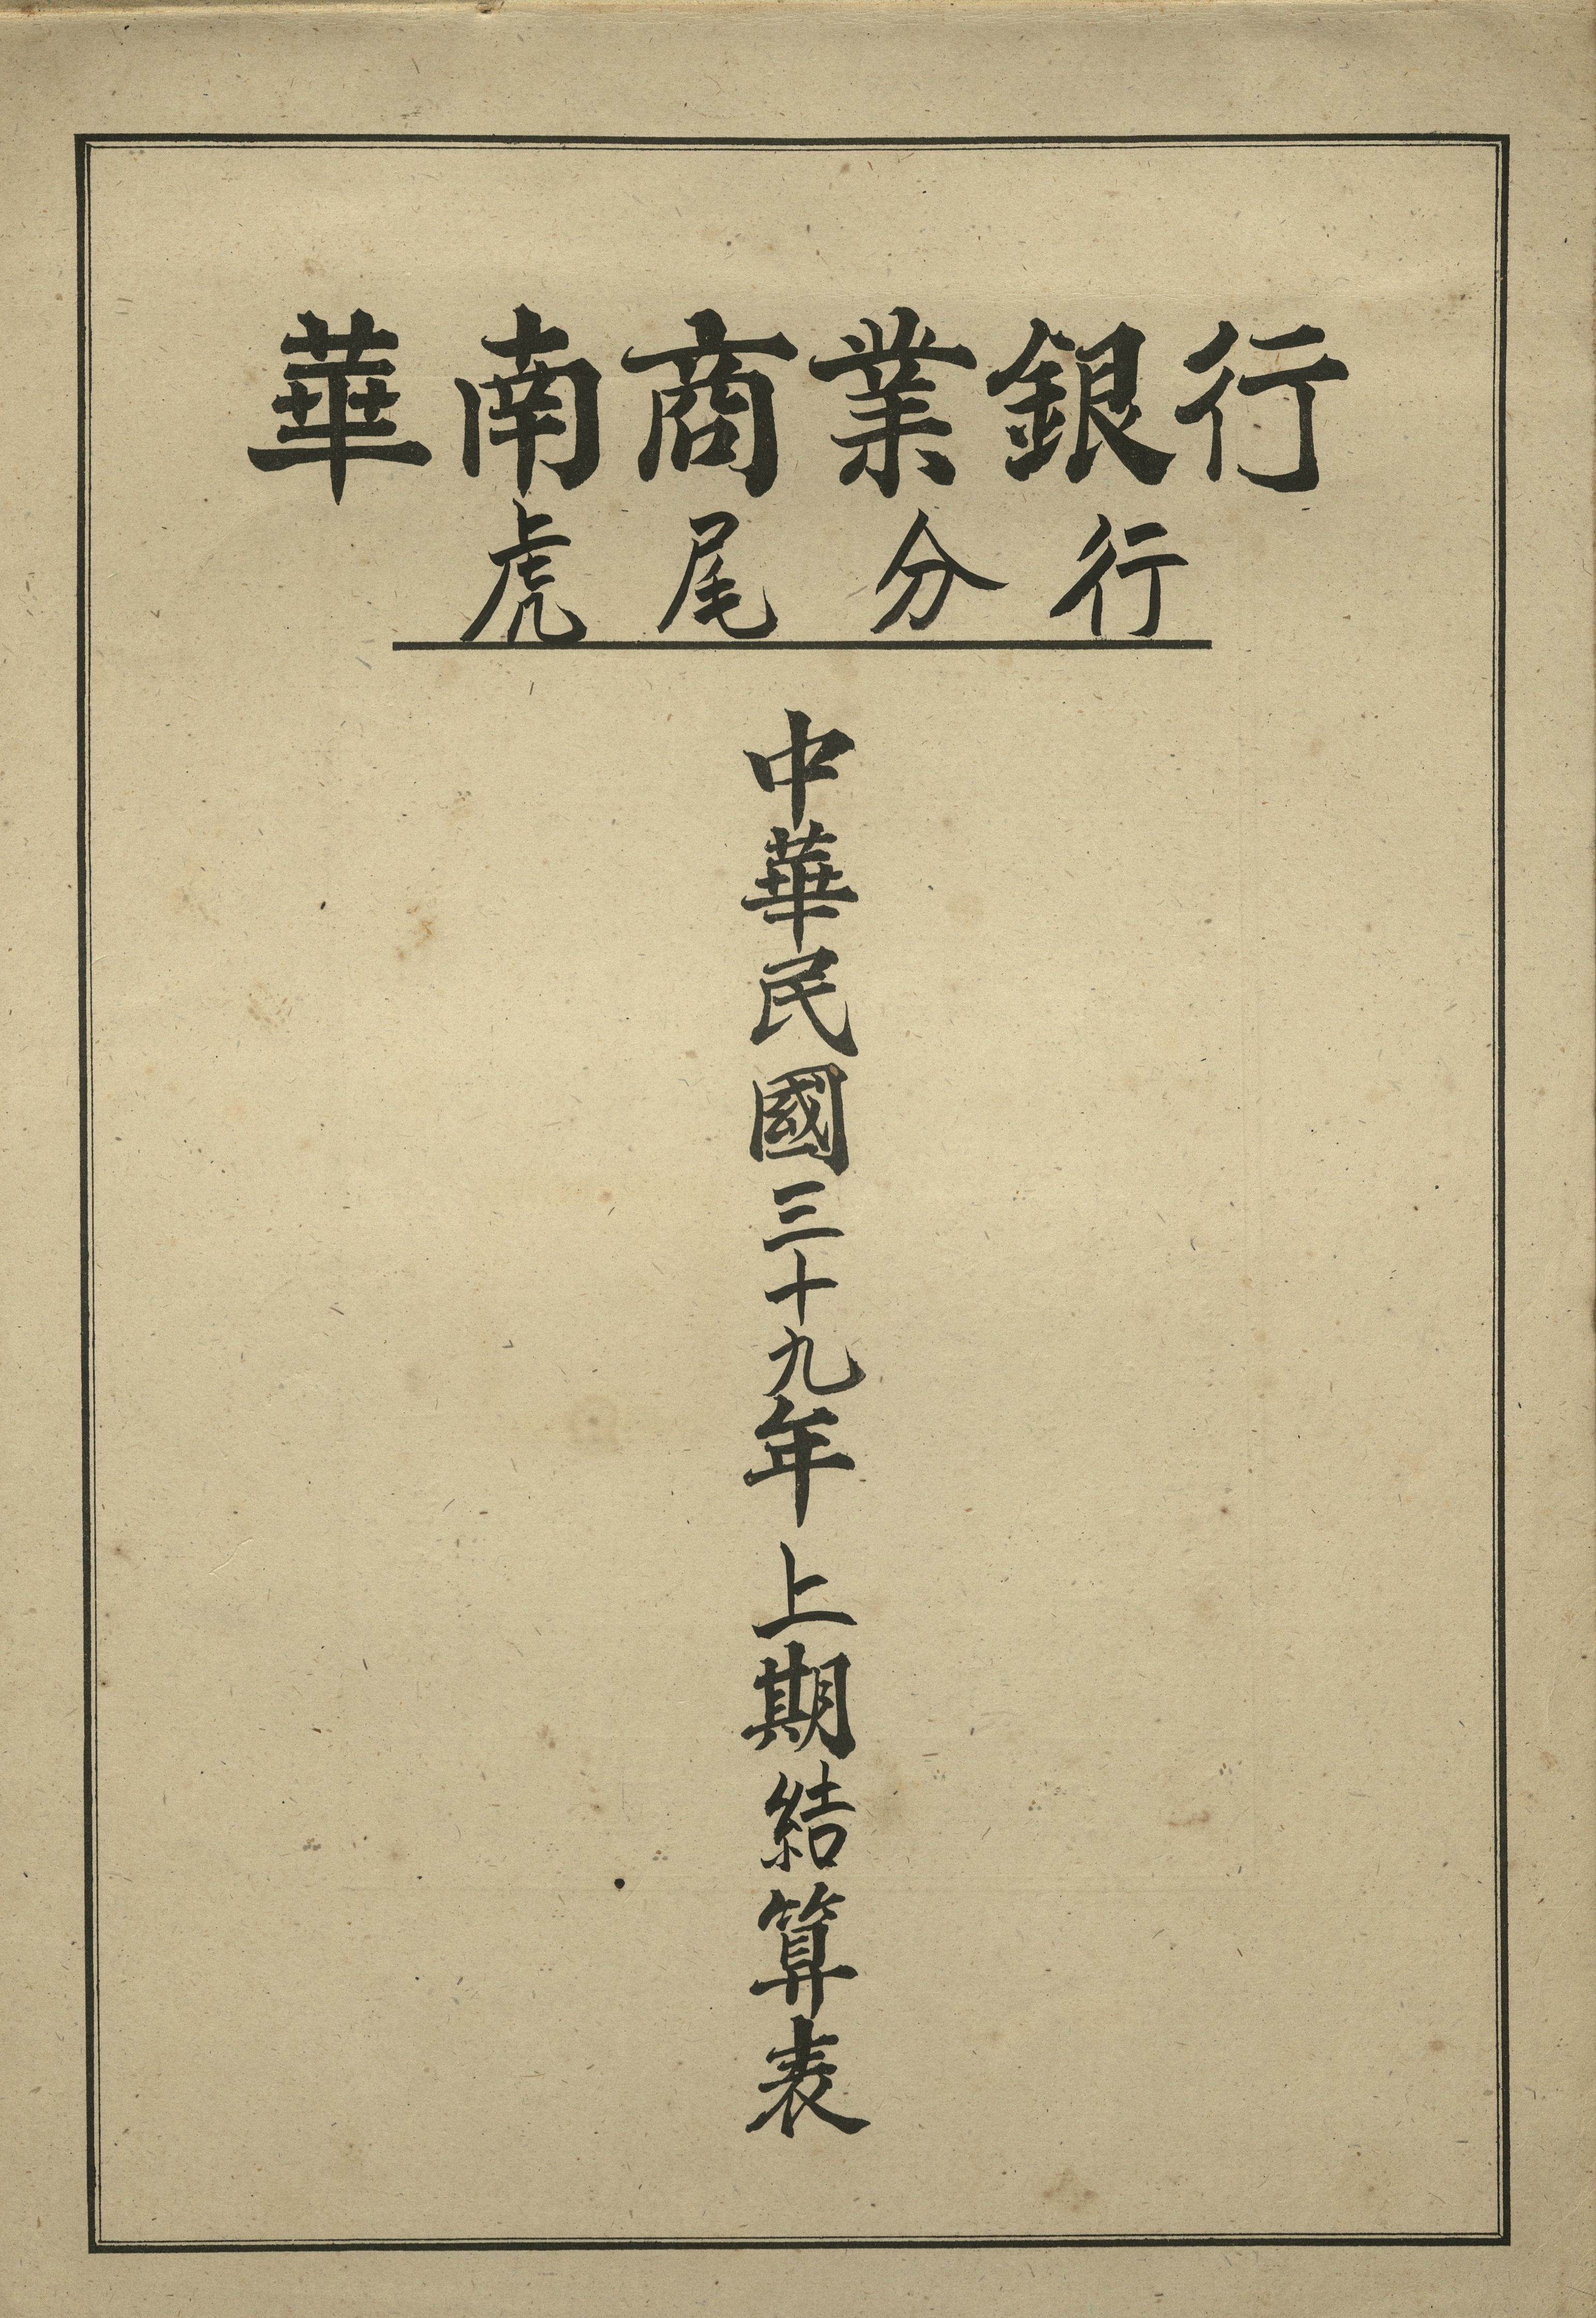 華南商業銀行
虎尾分行
中華民國三十九年上期結算表